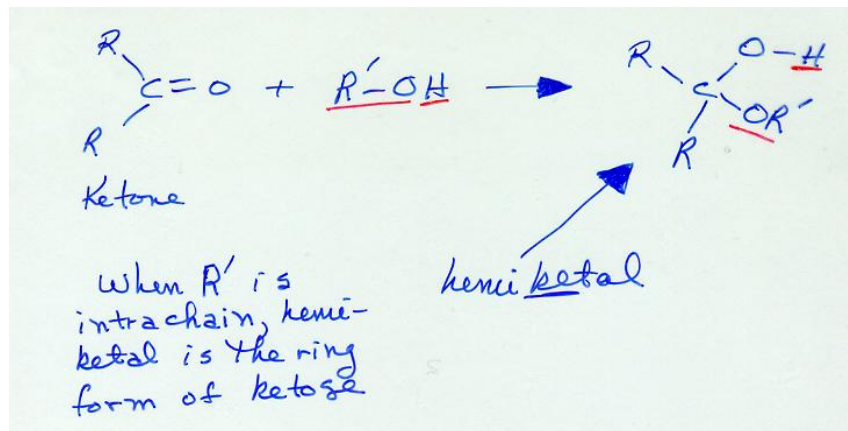 R
C=O + R'-OH
R
Ketone
R
O-H
C
OR'
R
When R' is
intrachain, hemi-
ketal is the ring
form of ketose
hemiketal